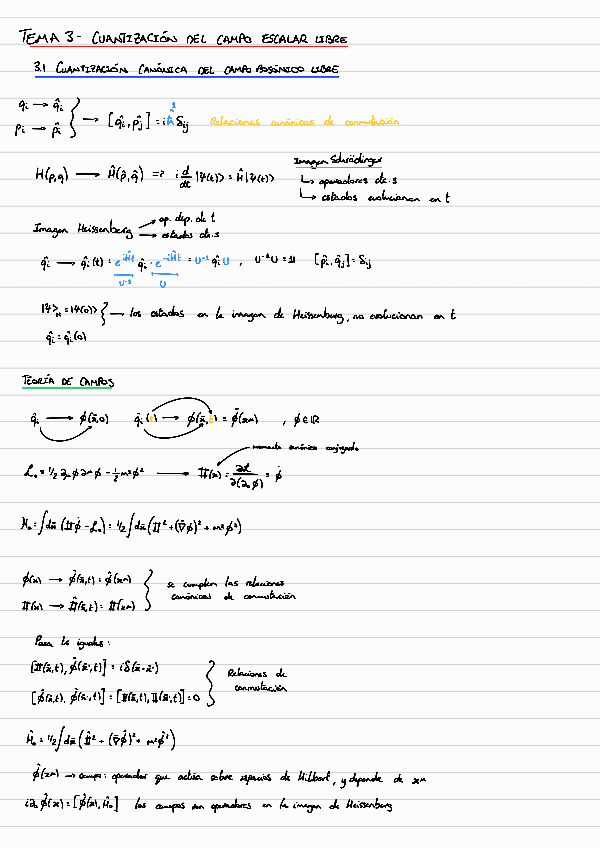 TEMA 3- CUANTIZACIÓN DEL CAMPO ESCALAR LIBRE
3.1 CUANTIZACIÓN CANÓNICA DEL CAMPO BOSÓNICO LIBRE
qi → q̂i
pi → p̂i } → [q̂i, p̂j] = iħ δij Relaciones canónicas de conmutación
1
H(p,q) → Ĥ(p̂,q̂) => i d/dt |Ψ(t)> = Ĥ|Ψ(t)>
Imagen Schrödinger
↳ operadores ctes
↳ estados evolucionan en t
Imagen Heissenberg → op. dep. de t
→ estados ctes
q̂i → q̂i(t) = e^{iĤt} q̂i · e^{-iĤt} = U⁻¹ q̂i U , U⁻¹U = 1 [p̂i, q̂j] = δij
U⁻¹ U
|Ψ>_H = |Ψ(0)>
q̂i = q̂i(0) } → los estados en la imagen de Heissenberg, no evolucionan en t
TEORÍA DE CAMPOS
q̂i → φ(x̄,0) q̂i(t) → φ(x̄,t) = φ̂(xμ) , φ∈ℝ
momento canónico conjugado
ℒ₀ = 1/2 ∂μφ∂μφ - 1/2 m²φ² → Π(x) = ∂ℒ/∂(∂₀φ) = φ̇
H₀ = ∫dx̄ (Πφ̇ - ℒ₀) = 1/2 ∫dx̄ (Π² + (∇̄φ)² + m²φ²)
φ(x) → φ̂(x̄,t) = φ̂(xμ)
Π(x) → Π̂(x̄,t) = Π̂(xμ) } se cumplen las relaciones canónicas de conmutación
Para ts iguales:
[Π̂(x̄,t), φ̂(x̄',t)] = iδ(x̄-x̄')
[φ̂(x̄,t), φ̂(x̄',t)] = [Π̂(x̄,t), Π̂(x̄',t)] = 0 } Relaciones de conmutación
Ĥ₀ = 1/2 ∫dx̄ (Π̂² + (∇̄φ̂)² + m²φ̂²)
φ̂(xμ) → campo: operador que actúa sobre espacios de Hilbert, y depende de xμ
i∂₀φ̂(x) = [φ̂(x), Ĥ₀] los campos son operadores en la imagen de Heissenberg